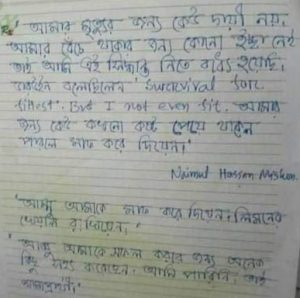 "আমার মৃত্যুর জন্য কেউ দায়ী নয়.
আমার বেঁচে থাকার জন্য কোনো ইচ্ছা নেই
তাই আমি এই সিদ্ধান্ত নিতে বাধ্য হয়েছি.
বলেছিলেন 'survival for
fittest'. But I not even fit. আমার
জন্য কেউ কখনো কষ্ট পেয়ে থাকেন
পারলে মাফ করে দিয়েন।"
Naimul Hassan
"আম্মু আমাকে মাফ করে দিয়েন।
"আব্বু আমাকে সফল করার জন্য অনেক
কিছু সহ্য করেছেন. আমি পারিনি, তাই